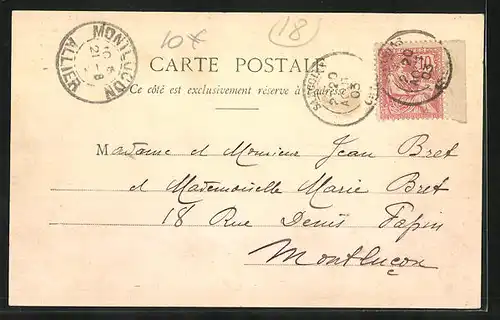 10*
(18)
MONTLUÇON
ALLIER
CARTE POSTALE
Ce côté est exclusivement réservé à l'adresse
20
03
10
Madame et Monsieur Jean Bret
et Mademoiselle Marie Bret
18 Rue Denis Papin
Montluçon